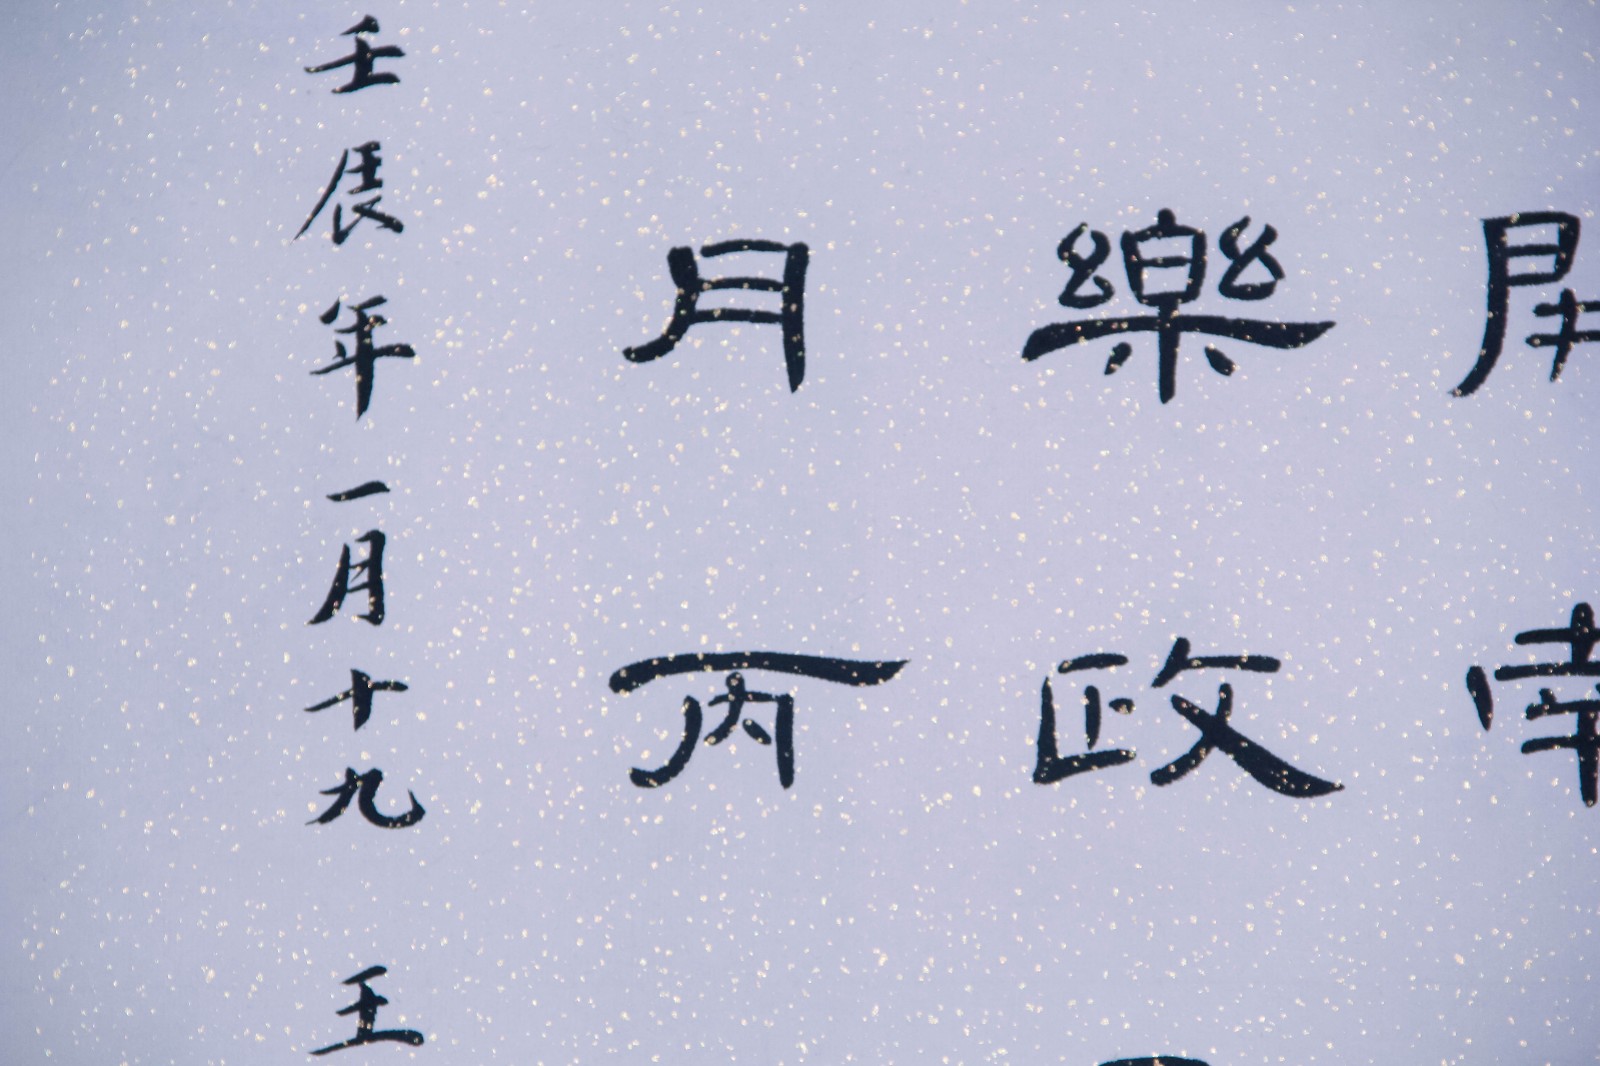 樂政
月丙
壬辰年一月十九 王